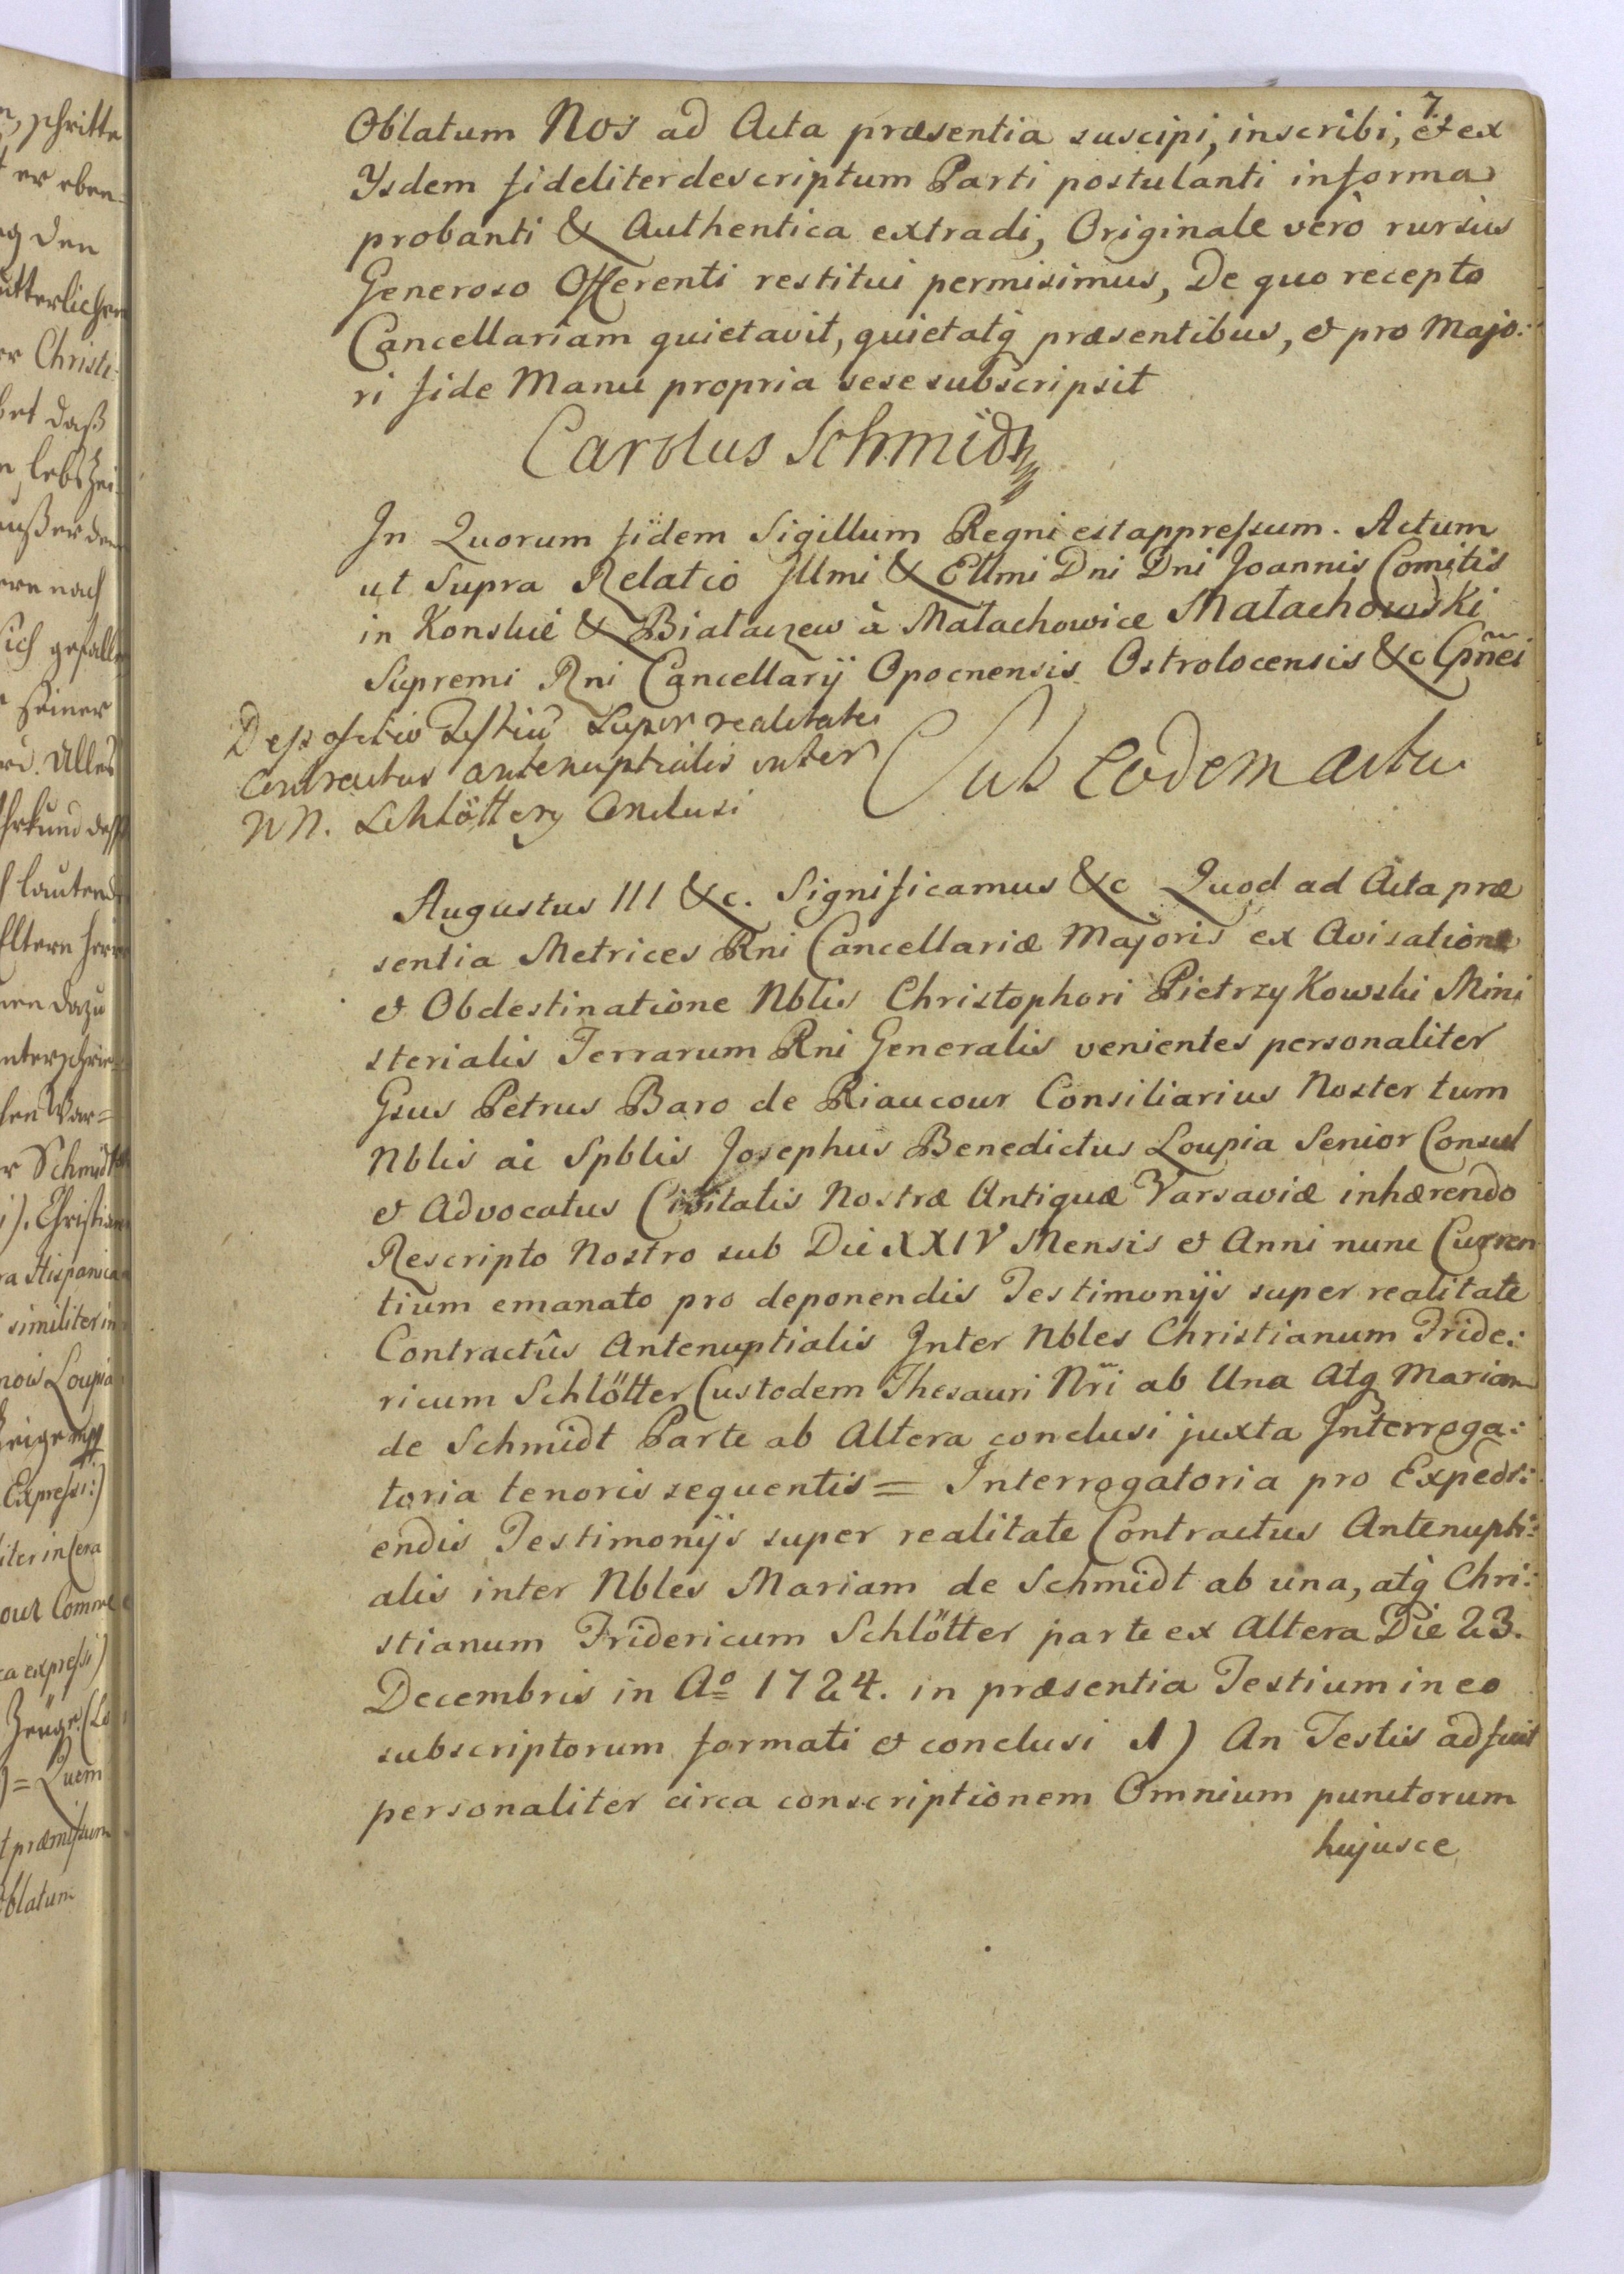 7
Oblatum Nos ad Acta præsentia suscipi, inscribi, et ex
Ysdem fideliter descriptum Parti postulanti in forma
probanti & Authentica extradi, Originale verò rursùs
Generoso Offerenti restitui permisimus, De quo recepto
Cancellariam quietavit, quietatq præsentibus, & pro Majo:
ri fide Manu propria sese subscripsit
Carolus Schmidt
In Quorum fidem Sigillum Regni est appressum. Actum
ut Supra Relatio Illmi & Ellmi Dni Dni Joannis Comitis
in Konskie & Białaczew à Małachowice Małachowski
Supremi Rni Cancellarij Opocnensis Ostrolocensis &c Cpnei
Depositio Testiu Super realitate
Contractus antenuptialis inter
NN. Schlötter Conclusi
Sub eodem actu
Augustus III &c. Significamus &c Quod ad Acta præ
sentia Metrices Rni Cancellariæ Majoris ex Avisatione
& Obdestinatione Nblis Christophori Pietrzykowski Mini
sterialis Terrarum Rni Generalis venientes personaliter
Gsus Petrus Baro de Riaucour Consiliarius Noster tum
Nblis ac Spblis Josephus Benedictus Loupia Senior Consul
& Advocatus Civitatis Nostræ Antiquæ Varsaviæ inhærendo
Rescripto Nostro sub Die XXIV Mensis & Anni nunc Curren
tium emanato pro deponendis Testimonijs super realitate
Contractûs Antenuptialis Inter Nbles Christianum Fride:
ricum Schlötter Custodem Thesauri Nri ab Una Atq Mariam
de Schmidt Parte ab Altera conclusi juxta Interroga:
toria tenoris sequentis = Interrogatoria pro Expedi:
endis Testimonijs super realitate Contractus Antenupti:
alis inter Nbles Mariam de Schmidt ab una, atq Chri:
stianum Fridericum Schlötter parte ex Altera Die 23.
Decembris in Aº 1724. in præsentia Testium in eo
subscriptorum formati & conclusi 1) An Testis adfuit
personaliter circa conscriptionem Omnium punctorum
hujusce